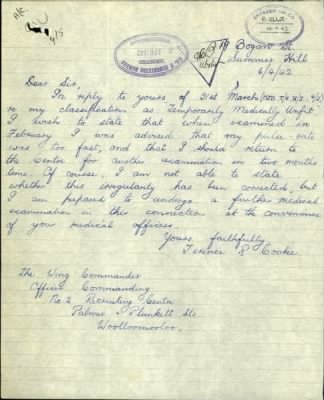 A/C.
4/5
79 Bogan St
Summer Hill
6/4/42
Dear Sir,
In reply to yours of 31st March
re my classification as Temporarily Medically Unfit
I wish to state that when examined in
February I was advised that my pulse-rate
was too fast, and that I should return to
the Centre for another examination in two months
time. Of course, I am not able to state
whether this irregularity has been corrected, but
I am prepared to undergo a further medical
examination in this connection at the convenience
of your medical officers.
Yours faithfully
Terence R Cooke
The Wing Commander
Officer Commanding
No 2 Recruiting Centre
Palmer & Plunkett Sts
Woolloomooloo.